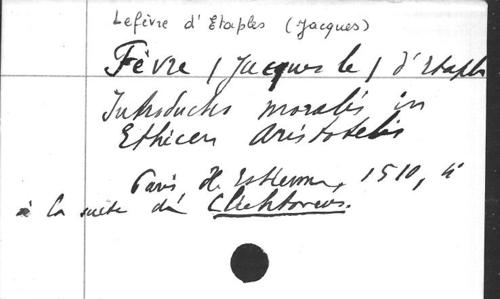 Lefèvre d'Etaples (Jacques)
Fèvre / Jacques le / d'Etaples
Introductio moralis in
Ethicen Aristotelis
Paris, H. Estienne, 1510, 4°
à la suite de